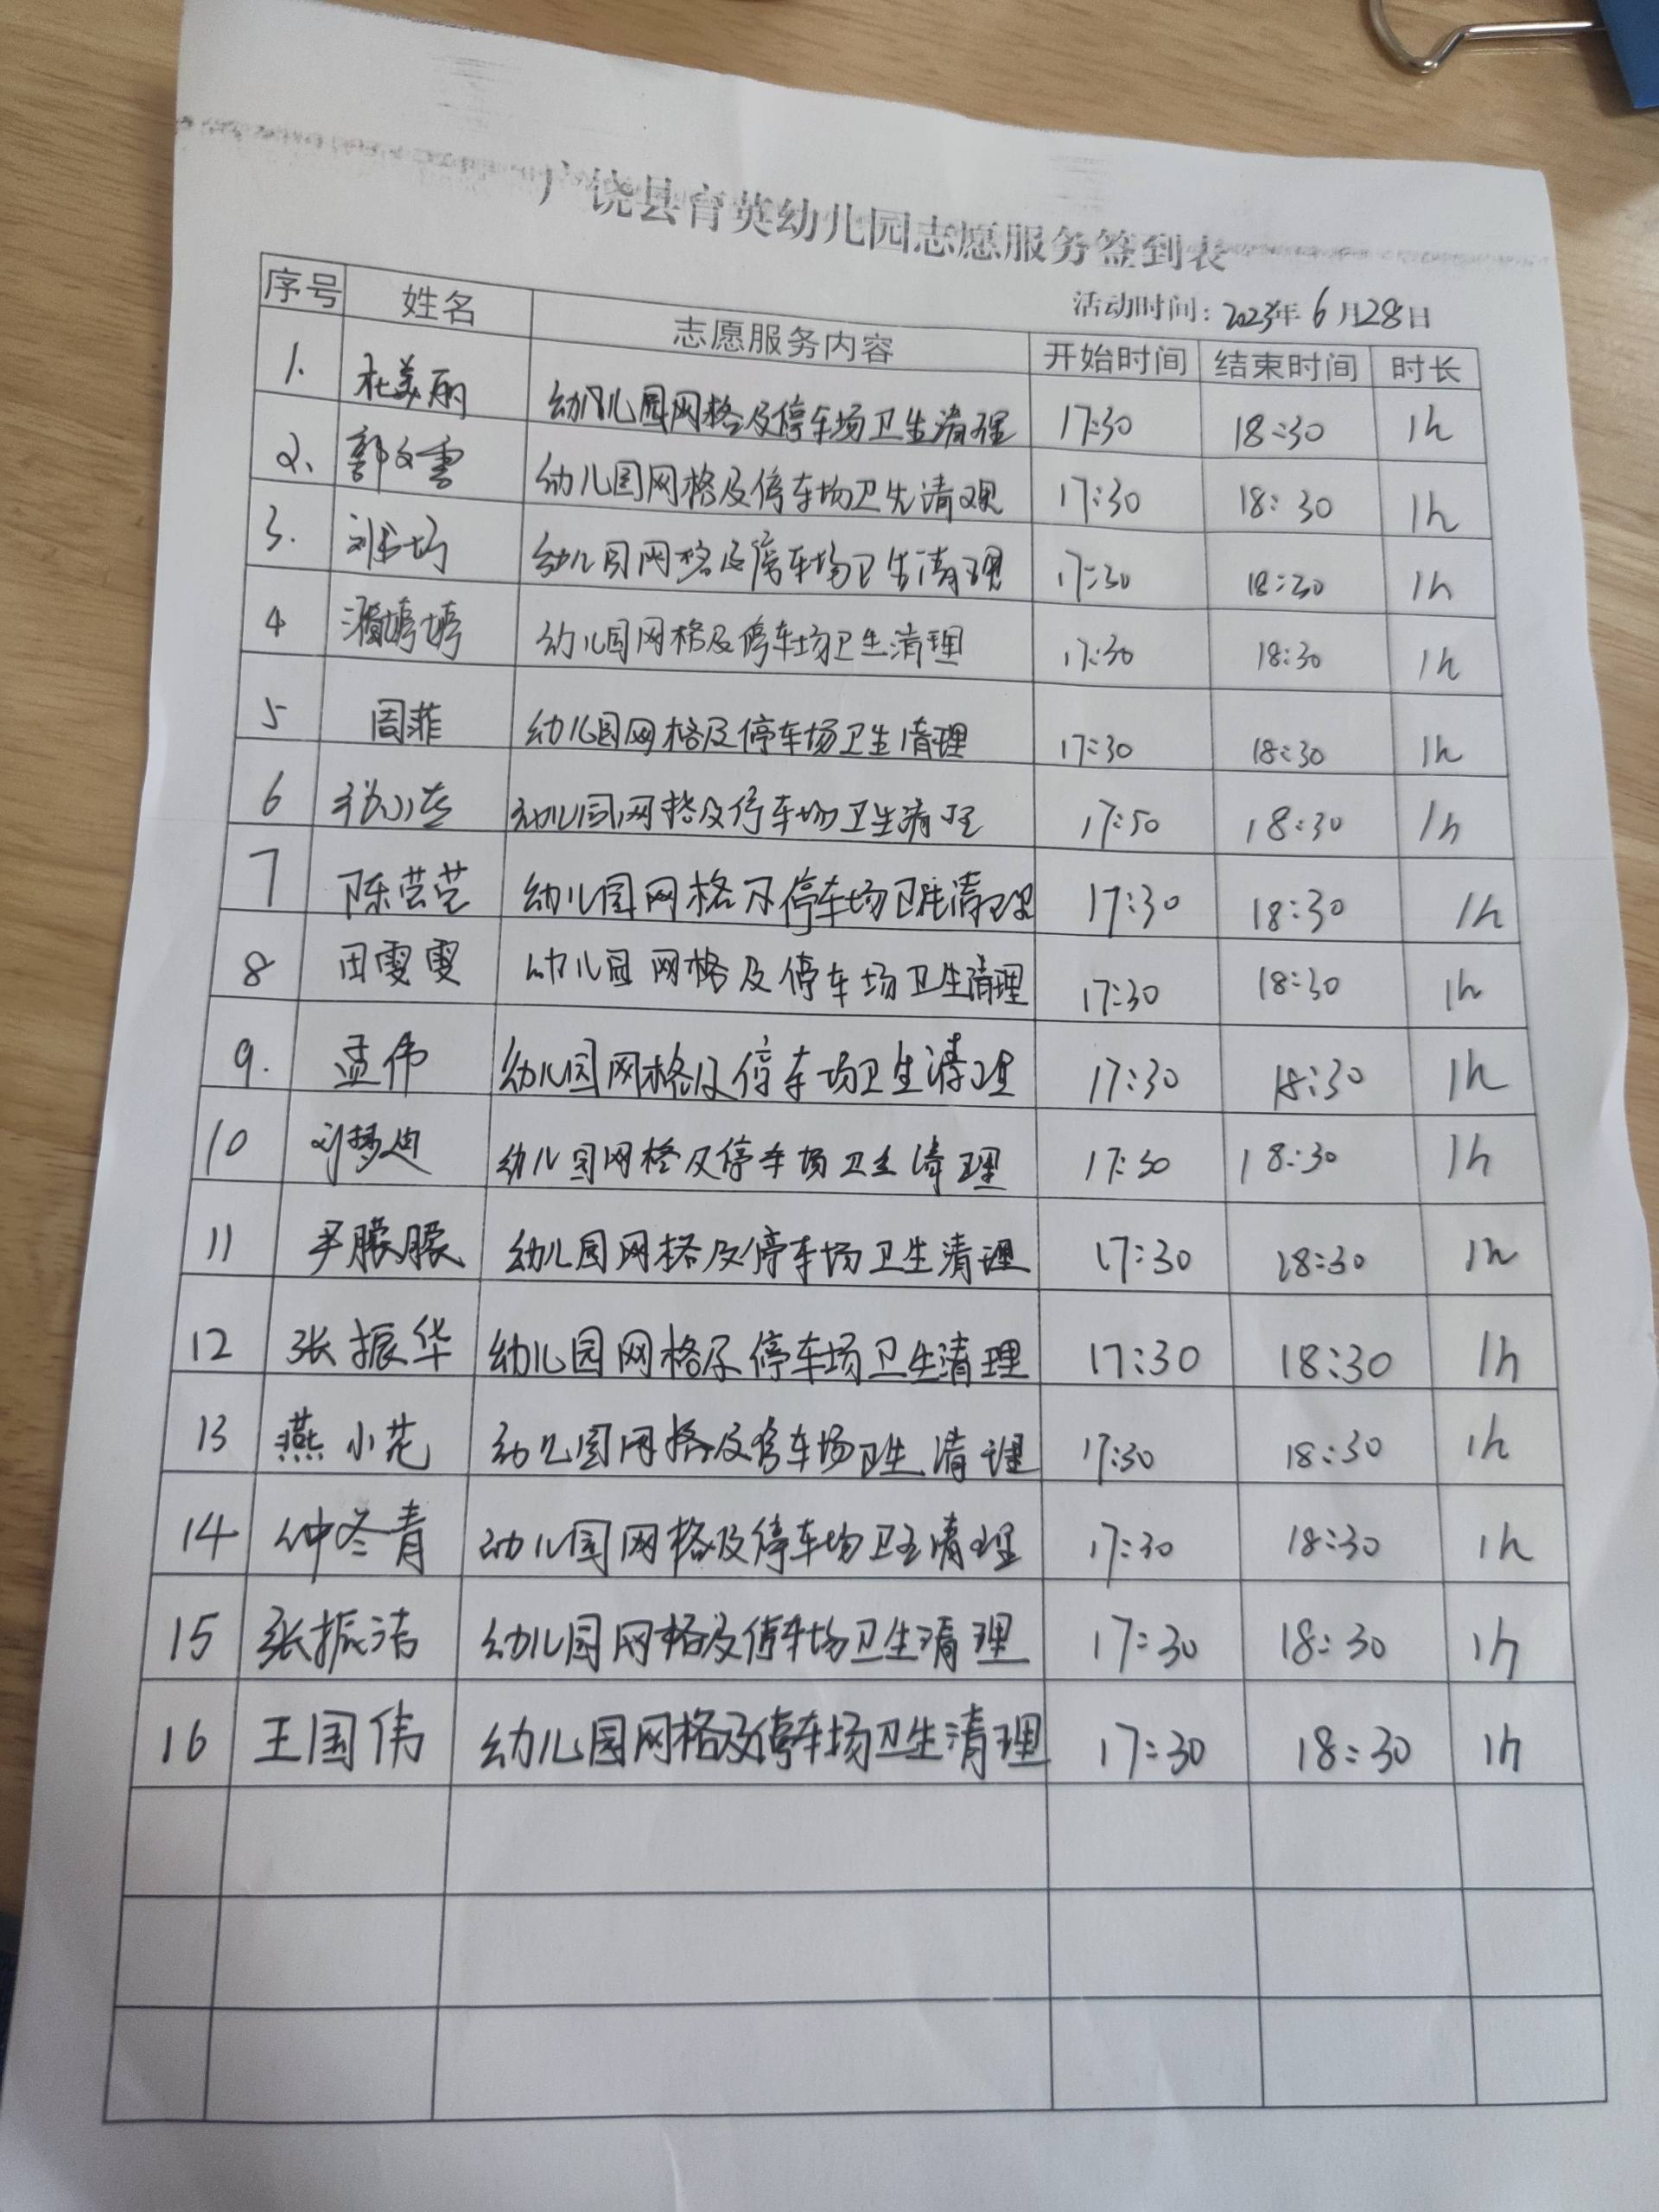 广饶县育英幼儿园志愿服务签到表
活动时间：2023年6月28日
序号 姓名 志愿服务内容 开始时间 结束时间 时长
1. 杜美丽 幼儿园网格及停车场卫生清理 17:30 18:30 1h
2、 郭文雪 幼儿园网格及停车场卫生清理 17:30 18:30 1h
3. 幼儿园网格及停车场卫生清理 17:30 18:30 1h
4 婷婷 幼儿园网格及停车场卫生清理 17:30 18:30 1h
5 周菲 幼儿园网格及停车场卫生清理 17:30 18:30 1h
6 幼儿园网格及停车场卫生清理 17:50 18:30 1h
7 陈芸芸 幼儿园网格及停车场卫生清理 17:30 18:30 1h
8 田雯雯 幼儿园网格及停车场卫生清理 17:30 18:30 1h
9. 孟伟 幼儿园网格及停车场卫生清理 17:30 18:30 1h
10 刘梦迪 幼儿园网格及停车场卫生清理 17:30 18:30 1h
11 尹朦朦 幼儿园网格及停车场卫生清理 17:30 18:30 1h
12 张振华 幼儿园网格及停车场卫生清理 17:30 18:30 1h
13 燕小花 幼儿园网格及停车场卫生清理 17:30 18:30 1h
14 仲冬青 幼儿园网格及停车场卫生清理 17:30 18:30 1h
15 张振洁 幼儿园网格及停车场卫生清理 17:30 18:30 1h
16 王国伟 幼儿园网格及停车场卫生清理 17:30 18:30 1h